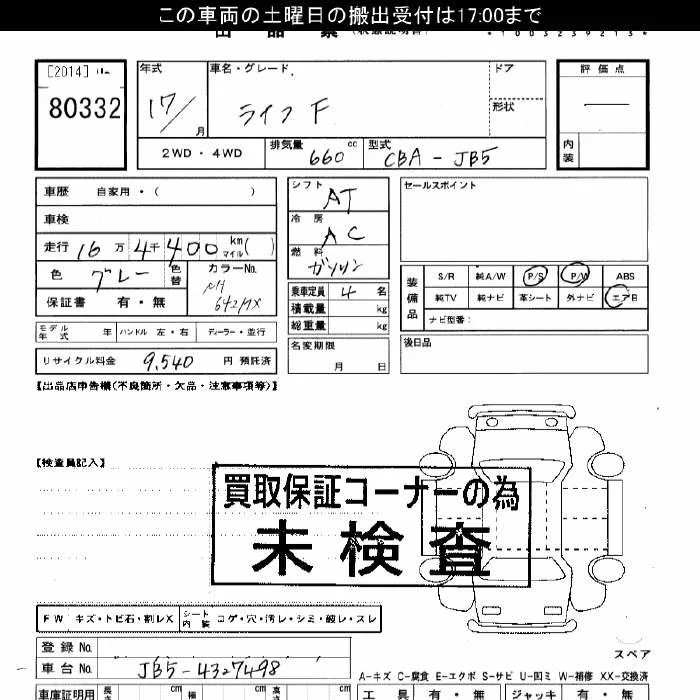 この車両の土曜日の搬出受付は17:00まで
[2014]
80332
年式
17/
月
車名・グレード
ライフ F
ドア
形状
評価点
—
内装
2WD ・ 4WD
排気量
660 cc
型式
CBA - JB5
車歴 自家用 ・ ( )
車検
走行 16万 4千 400 km マイル ( )
色 グレー 色替
カラーNo.
NH
642MX
保証書 有 ・ 無
シフト
AT
冷房
AC
燃料
ガソリン
乗車定員 4 名
積載量 kg
総重量 kg
名変期限
月 日
セールスポイント
装備品
S/R 純A/W P/S P/W ABS
純TV 純ナビ 革シート 外ナビ エアB
ナビ型番:
後日品
モデル年式 年 ハンドル 左 ・ 右 ディーラー ・ 並行
リサイクル料金 9,540 円 預託済
【出品店申告欄(不良箇所・欠品・注意事項等)】
【検査員記入】
買取保証コーナーの為
未検査
FW キズ・トビ石・割レX シート内装 コゲ・穴・汚レ・シミ・破レ・スレ
登録 No.
車台 No. JB5-4327498
スペア
A-キズ C-腐食 E-エクボ S-サビ U-凹ミ W-補修 XX-交換済
車庫証明用 長さ cm 幅 cm 高さ cm
工具 有 ・ 無 ジャッキ 有 ・ 無